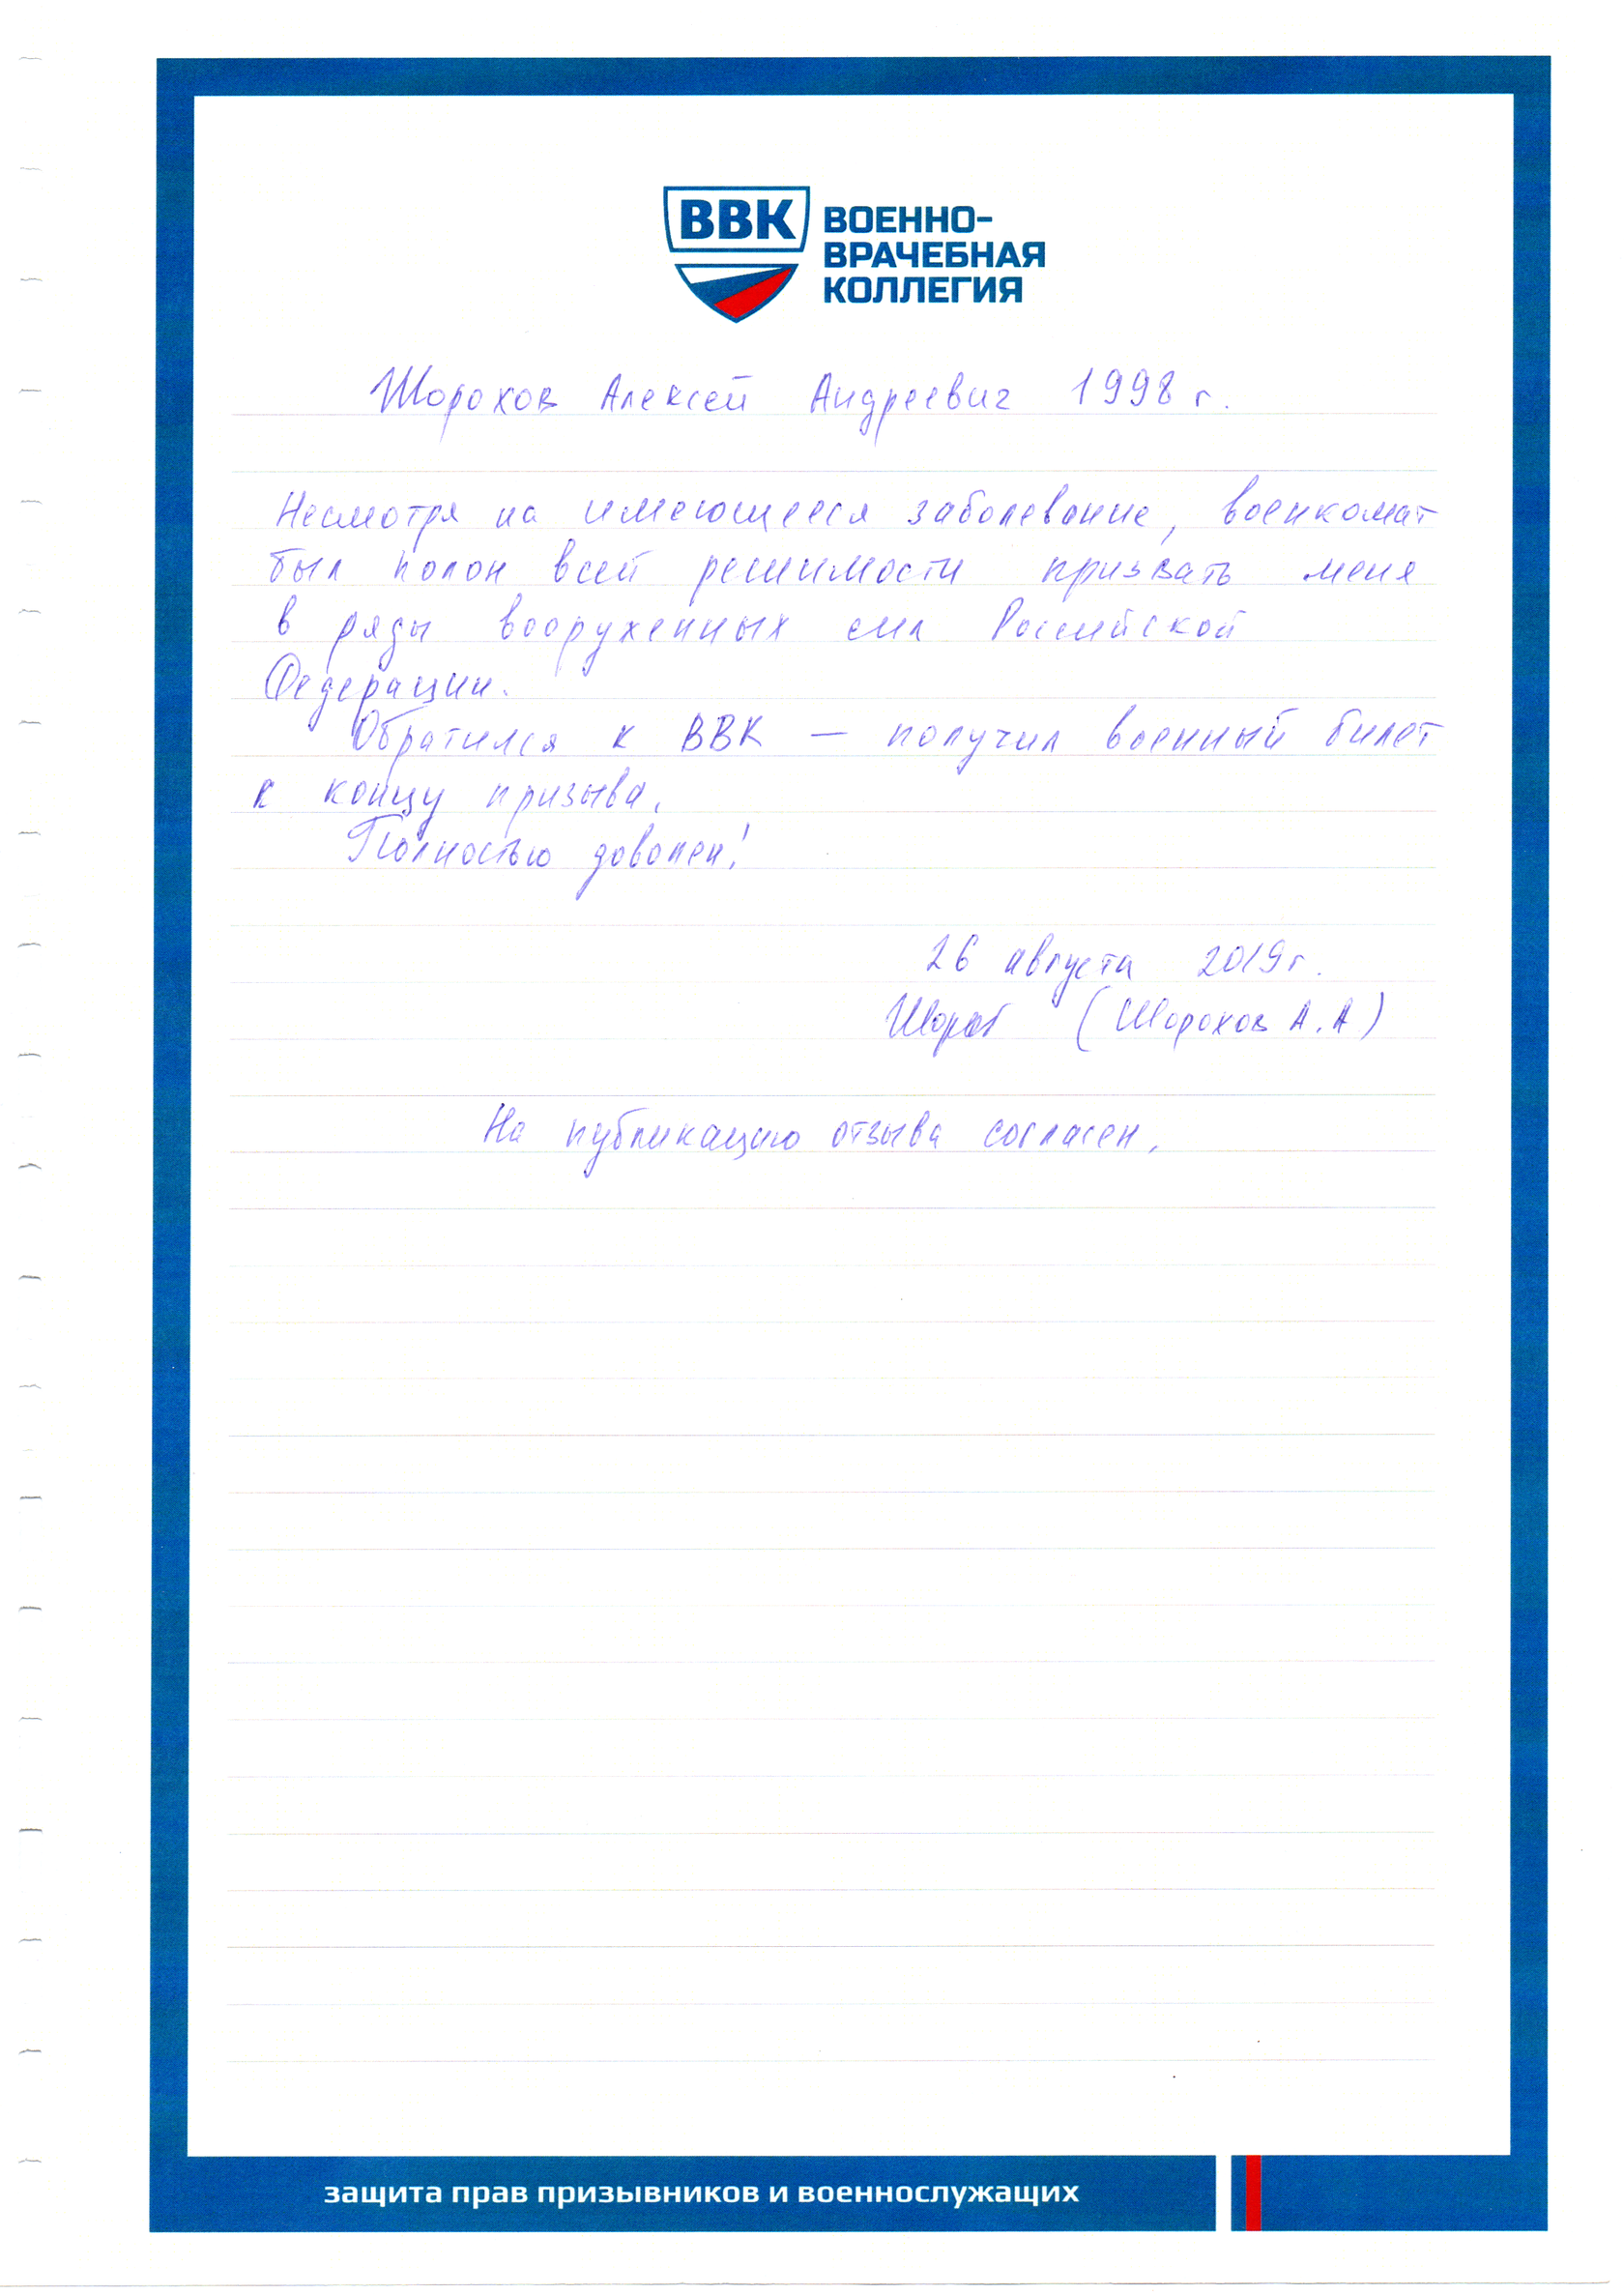 ВВК
ВОЕННО-
ВРАЧЕБНАЯ
КОЛЛЕГИЯ
Шорохов Алексей Андреевич 1998 г.
Несмотря на имеющееся заболевание, военкомат
был полон всей решимости призвать меня
в ряды вооруженных сил Российской
Федерации.
Обратился к ВВК — получил военный билет
к концу призыва.
Полностью доволен!
26 августа 2019г.
(Шорохов А.А)
На публикацию отзыва согласен.
защита прав призывников и военнослужащих